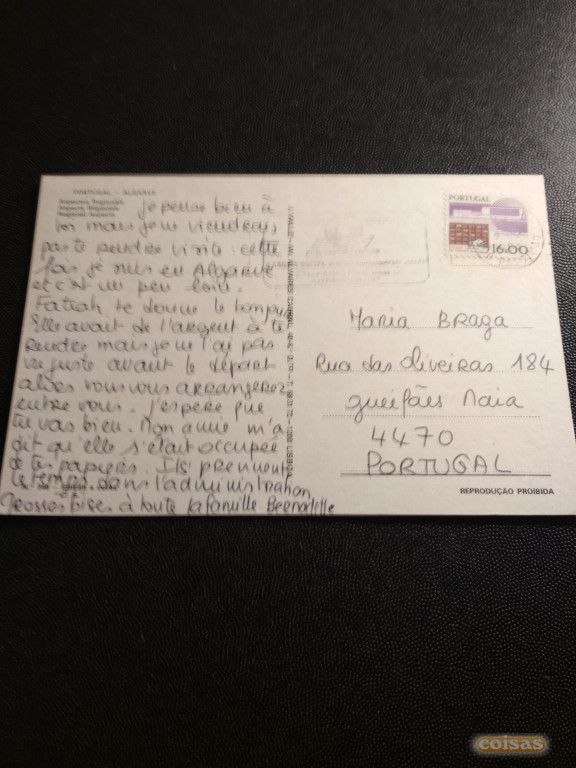 PORTUGAL - ALGARVE
Je pense bien à
toi mais je ne viendrai
pas te rendre visite cette
fois je suis en Algarve
et c'est un peu loin.
Fatiah te donne le bonjour
Elle avait de l'argent à te
rendre mais je ne l'ai pas
vu juste avant le départ
alors vous vous arrangerez
entre vous. J'espère que
tu vas bien. Mon amie m'a
dit qu'elle s'était occupée
de tes papiers. Ils prennent
le temps dans l'administration
Grosses bises à toute la famille Bernadette
PORTUGAL
16.00
Maria Braga
Rua das Oliveiras 184
gueifães Maia
4470
PORTUGAL
REPRODUÇÃO PROIBIDA
coisas